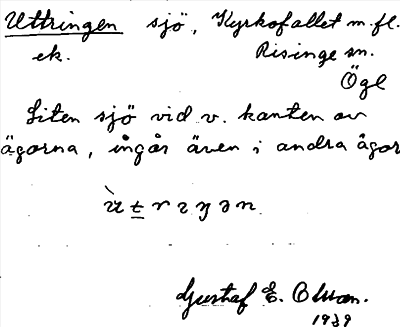 Uttringen sjö, Kyrkofallet m.fl.
ek. Risinge sn.
Ögl
Liten sjö vid v. kanten av
ägorna, ingår även i andra ägor
Gustaf E. Olsson.
1939